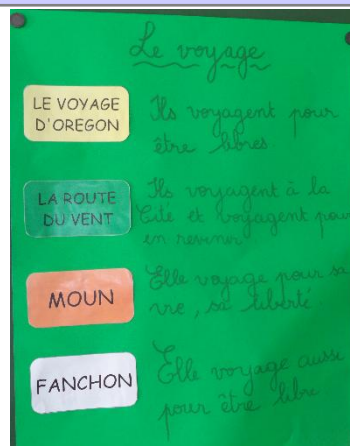 Le voyage
LE VOYAGE
D'OREGON
Ils voyagent pour
être libres
LA ROUTE
DU VENT
Ils voyagent à la
Cité et voyagent pour
en revenir
MOUN
Elle voyage pour sa
vie, sa liberté
FANCHON
Elle voyage aussi
pour être libre